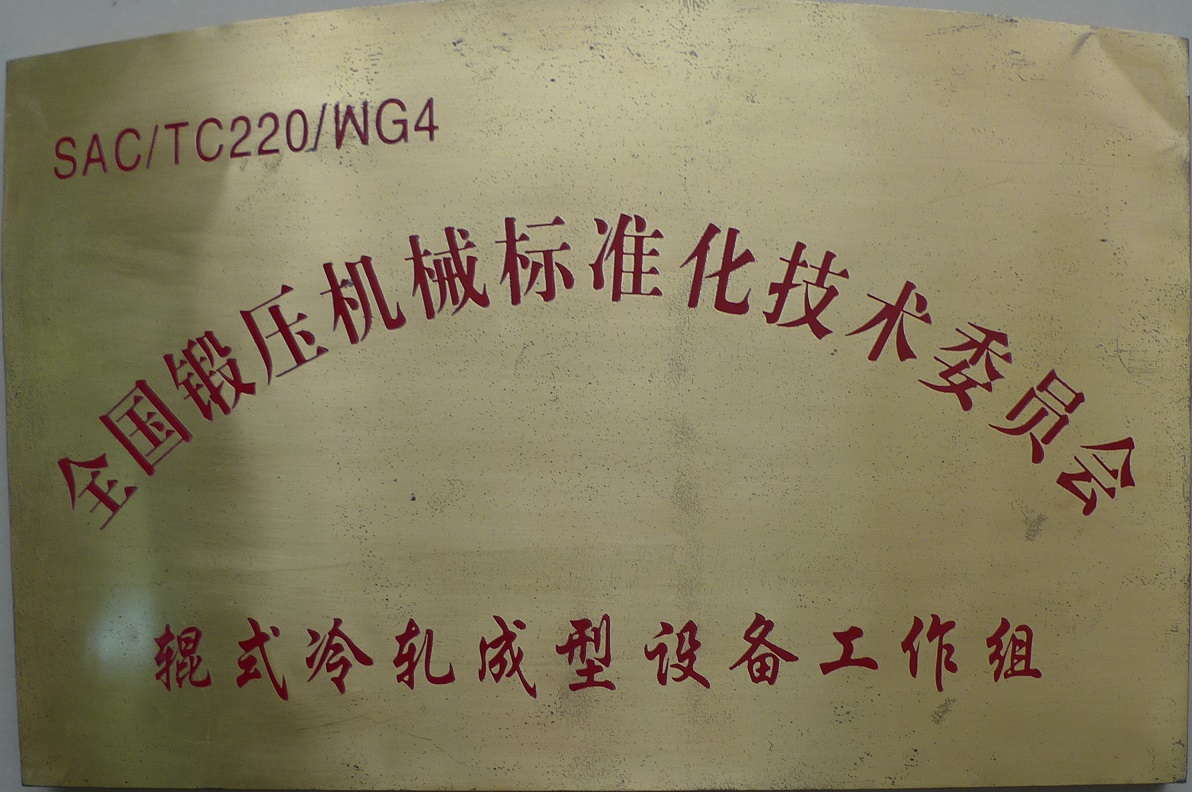 SAC/TC220/WG4
全国锻压机械标准化技术委员会
辊式冷轧成型设备工作组